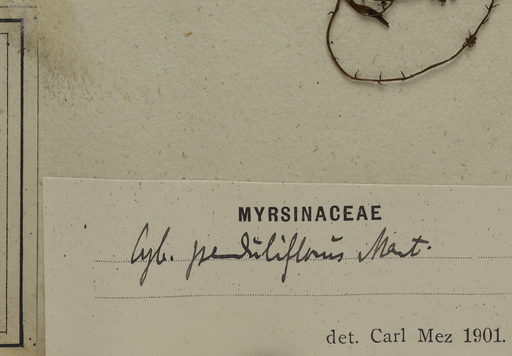 MYRSINACEAE
Cyb. penduliflorus Mart.
det. Carl Mez 1901.